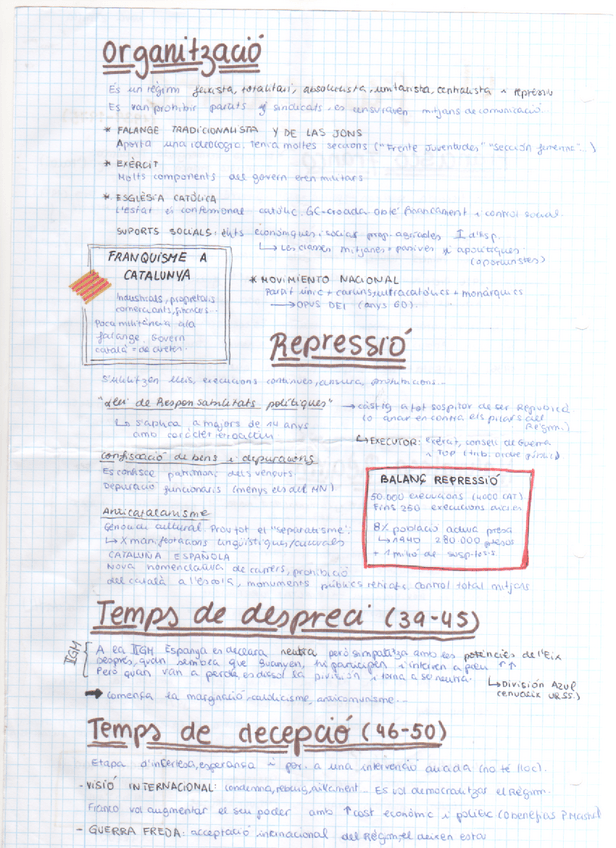 Organització
Es un règim feixista, totalitari, absolutista, unitarista, centralista i repressiu
Es van prohibir partits i sindicats, es censuraven mitjans de comunicació.
* FALANGE TRADICIONALISTA Y DE LAS JONS
Aporta una ideologia, tenia moltes seccions ("Frente Juventudes" "Sección femenina"...)
* EXÈRCIT
Molts components del govern eren militars
* ESGLÉSIA CATÒLICA
L'estat és confessional catòlic. GC=croada finançament i control social.
SUPORTS SOCIALS: elits econòmiques i socials prop. agrícoles
↳ Les classes mitjanes + apolítiques
(oportunistes)
FRANQUISME A
CATALUNYA
Industrials, propietaris
comerciants, financers...
Poca militància a la
falange. Govern
català =
* MOVIMIENTO NACIONAL
Partit únic + carlins, ultracatòlics + monàrquics
→ OPUS DEI (anys 60)
Repressió
S'utilitzen lleis, execucions contínues, censura, prohibicions...
"Llei de Responsabilitats polítiques" → càstig a tot sospitós de ser Republicà
(o anar en contra els pilars del
Règim)
↳ s'aplica a majors de 14 anys
amb caràcter retroactiu
↳ EXECUTOR: Exèrcit, consells de Guerra
i TOP (trib. ordre públic)
confiscació de béns i depuracions
Es confisca patrimoni dels vençuts.
Depuració funcionaris (menys els del NN)
BALANÇ REPRESSIÓ
50.000 execucions (4000 CAT)
Fins 250 execucions
8% població activa presa
↳ 1940 280.000 presos
+ 1 milió de
Anticatalanisme
Genocidi cultural. Prou tot el "separatisme".
↳ X manifestacions lingüístiques/culturals
CATALUÑA ESPAÑOLA
Nova nomenclatura de carrers, prohibició
del català a l'escola, monuments públics retirats, control total mitjans
Temps de despreci (39-45)
IIGM
A la IIGM Espanya es declara neutra però simpatitza amb les potències de l'Eix
Després, quan sembla que guanyen,
Però quan van a perdre, es dissol la divisió i torna a ser neutra.
↳ División Azul
(envaeix URSS)
→ comença la marginació, catolicisme, anticomunisme...
Temps de decepció (46-50)
Etapa d'incertesa, esperança i por a una intervenció aliada (no té lloc).
- VISIÓ INTERNACIONAL: condemna, rebuig, aïllament... Es vol democratitzar el Règim.
Franco vol augmentar el seu poder amb ↑ cost econòmic i polític (
- GUERRA FREDA: acceptació internacional del Règim, el